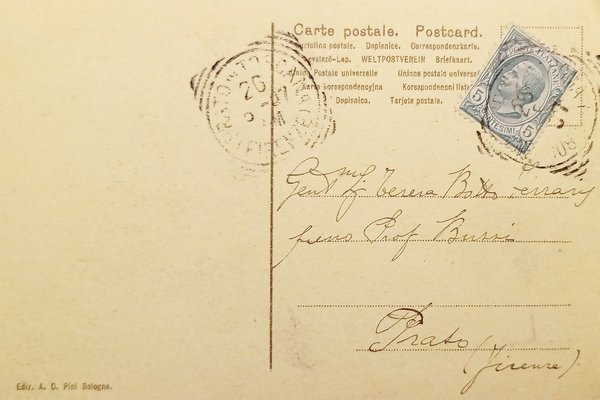 Carte postale. Postcard.
Cartolina postale. Dopisnice. Correspondenzkarte.
Levelező-Lap. WELTPOSTVEREIN Briefkaart.
Union Postale universelle Unione postale universale
Karta korespondencyjna Korespondenčni listek
Dopisnica. Tarjeta postale.
PRATO IN TOSCANA
(FIRENZE)
26
5
5
CENTESIMI
08
A mg
Gent Sig Teresa Botto Ferrary
presso Prof Burri
Prato
(Firenze)
Ediz. A. C. Pini Bologna.